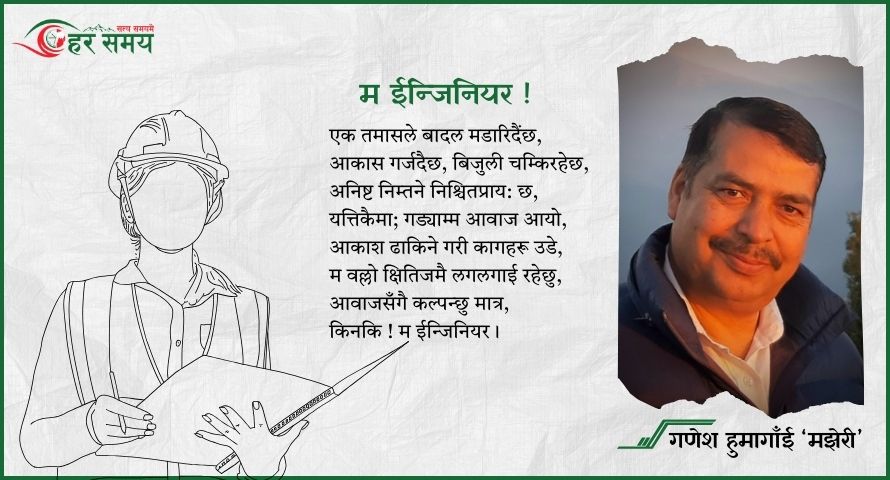 सत्य समयमै
हर समय
म ईन्जिनियर !
एक तमासले बादल मडारिदैंछ,
आकास गर्जदैछ, बिजुली चम्किरहेछ,
अनिष्ट निम्तने निश्चितप्राय: छ,
यत्तिकैमा; गड्याम्म आवाज आयो,
आकाश ढाकिने गरी कागहरू उडे,
म वल्लो क्षितिजमै लगलगाई रहेछु,
आवाजसँगै कल्पन्छु मात्र,
किनकि ! म ईन्जिनियर।
गणेश हुमागाँई ‘मझेरी’